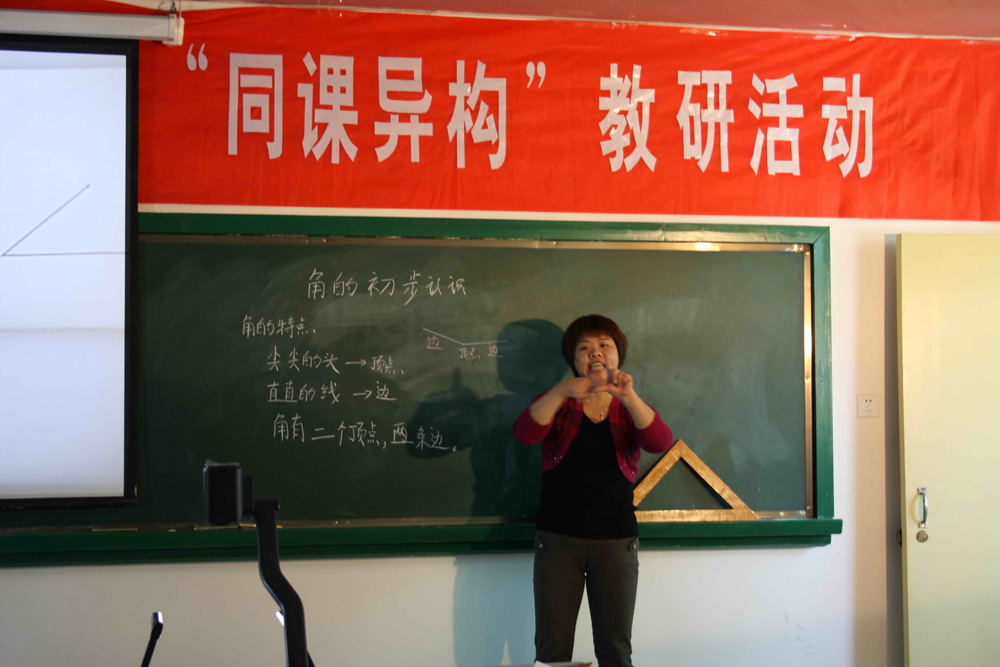 “同课异构”教研活动
角的初步认识
角的特点、
边 顶点 边
尖尖的头→顶点、
直直的线→边
角有二个顶点,两条边。